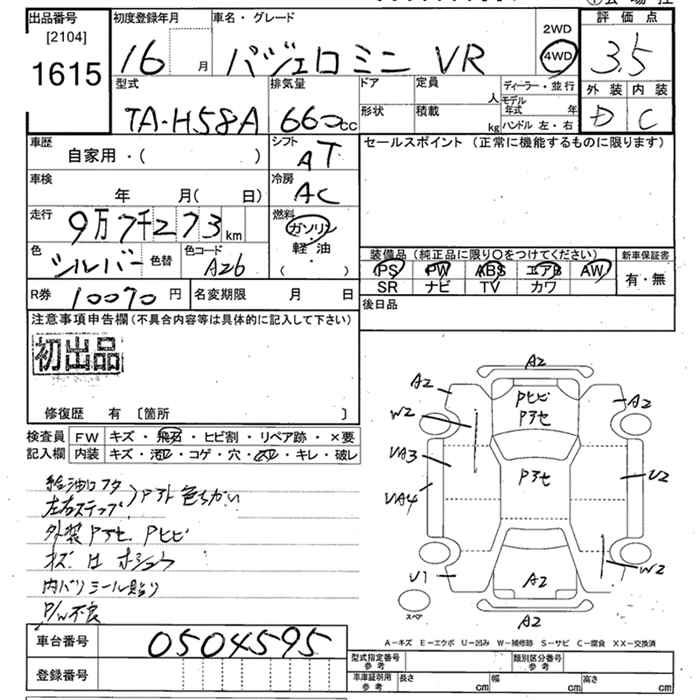 出品番号
[2104]
1615
初度登録年月
16 月
車名・グレード
パジェロミニ VR
2WD
4WD
評価点
3.5
外装 内装
D C
型式
TA-H58A
排気量
660cc
ドア
形状
定員
人
積載
kg
ディーラー・並行
モデル年式 年
ハンドル 左・右
車歴
自家用・( )
シフト
AT
セールスポイント (正常に機能するものに限ります)
車検
年 月( 日)
冷房
AC
走行
9万7千273km
燃料
ガソリン
・
軽油
( )
色
シルバー
色替
色コード
A26
装備品 (純正品に限り○をつけてください)
PS PW ABS エアB AW
SR ナビ TV カワ
新車保証書
有・無
R券 10070円
名変期限 月 日
後日品
注意事項申告欄(不具合内容等は具体的に記入して下さい)
初出品
修復歴 有 [箇所 ]
検査員記入欄
FW キズ・飛石・ヒビ割・リペア跡・×要
内装 キズ・汚レ・コゲ・穴・スレ・キレ・破レ
給油口フタ
左右ステップ
Pアト 色ちがい
外装 Pアセ Pヒビ
キズ H ホシュウ
内バリシール貼り
P/W不良
A2
A2
A2
W2
Pヒビ
Pアセ
UA3
UA4
Pアセ
U2
U1
A2
W2
A2
スペア
A-キズ E-エクボ U-凹み W-補修跡 S-サビ C-腐食 XX-交換済
車台番号 0504595
登録番号
型式指定番号 参考
類別区分番号 参考
車庫証明用 参考
長さ cm
幅 cm
高さ cm